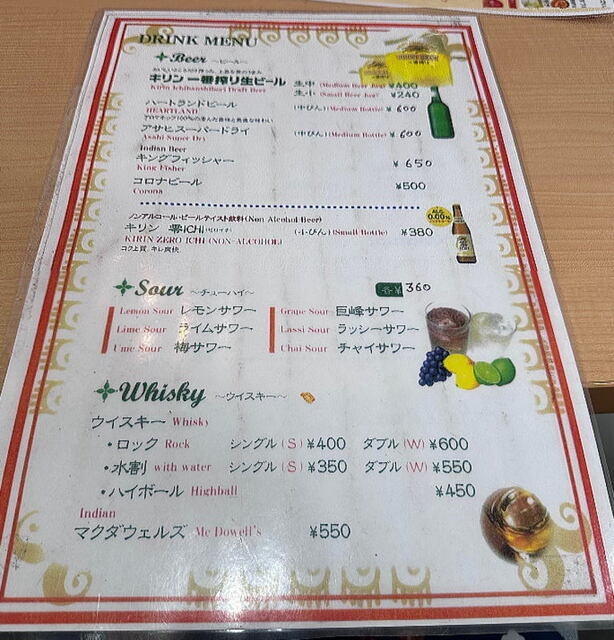 DRINK MENU
Beer ～ビール～
キリン一番搾り生ビール 生中 (Medium Beer Jug) ¥400
Kirin Ichibanshibori Draft Beer 生小 (Small Beer Jug) ¥240
ハートランドビール (中びん) (Medium Bottle) ¥600
HEARTLAND
アサヒスーパードライ (中びん) (Medium Bottle) ¥600
Asahi Super Dry
Indian Beer
キングフィッシャー ¥650
King Fisher
コロナビール ¥500
Corona
ノンアルコール・ビールテイスト飲料 (Non Alcohol Beer)
キリン 零ICHI (ゼロイチ) (小びん) (Small Bottle) ¥380
KIRIN ZERO ICHI (NON-ALCOHOL)
コク上質、キレ爽快
0.00%
Sour ～チューハイ～ 360
Lemon Sour レモンサワー Grape Sour 巨峰サワー
Lime Sour ライムサワー Lassi Sour ラッシーサワー
Ume Sour 梅サワー Chai Sour チャイサワー
Whisky ～ウイスキー～
ウイスキー Whisky
・ロック Rock シングル (S) ¥400 ダブル (W) ¥600
・水割 with water シングル (S) ¥350 ダブル (W) ¥550
・ハイボール Highball ¥450
Indian
マクダウェルズ Mc Dowell's ¥550